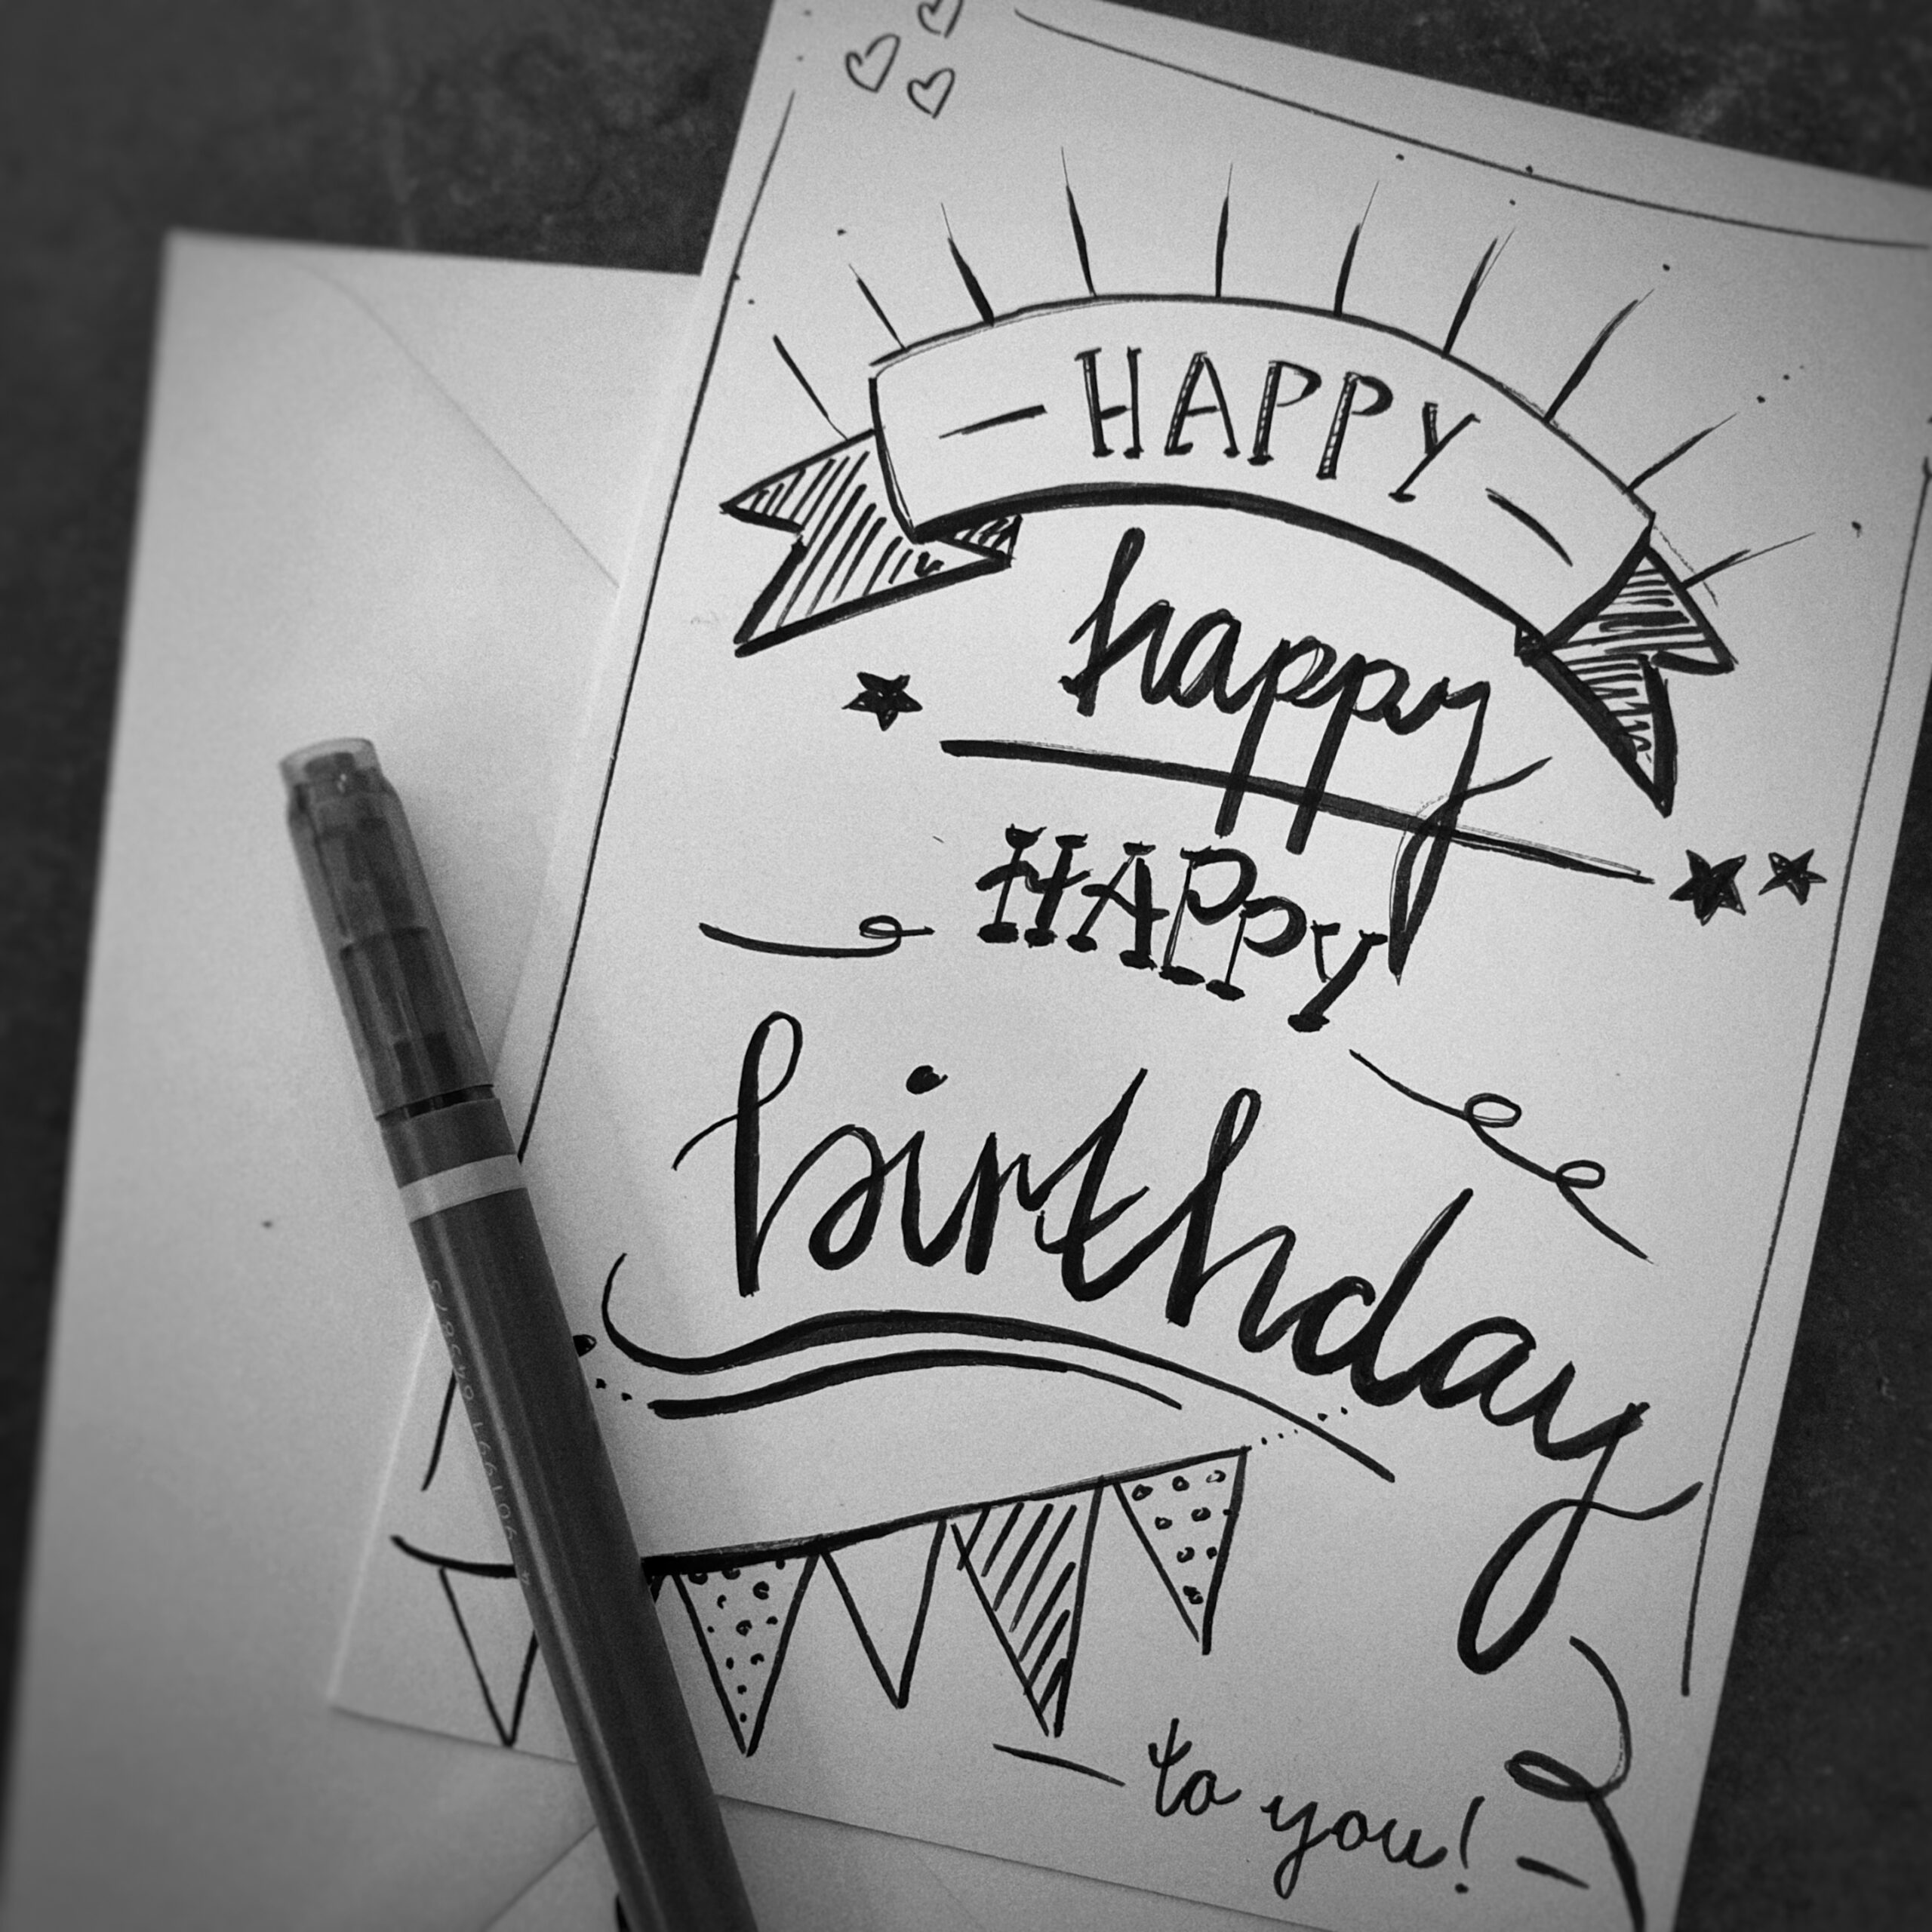 HAPPY
happy
HAPPY
birthday
to you!